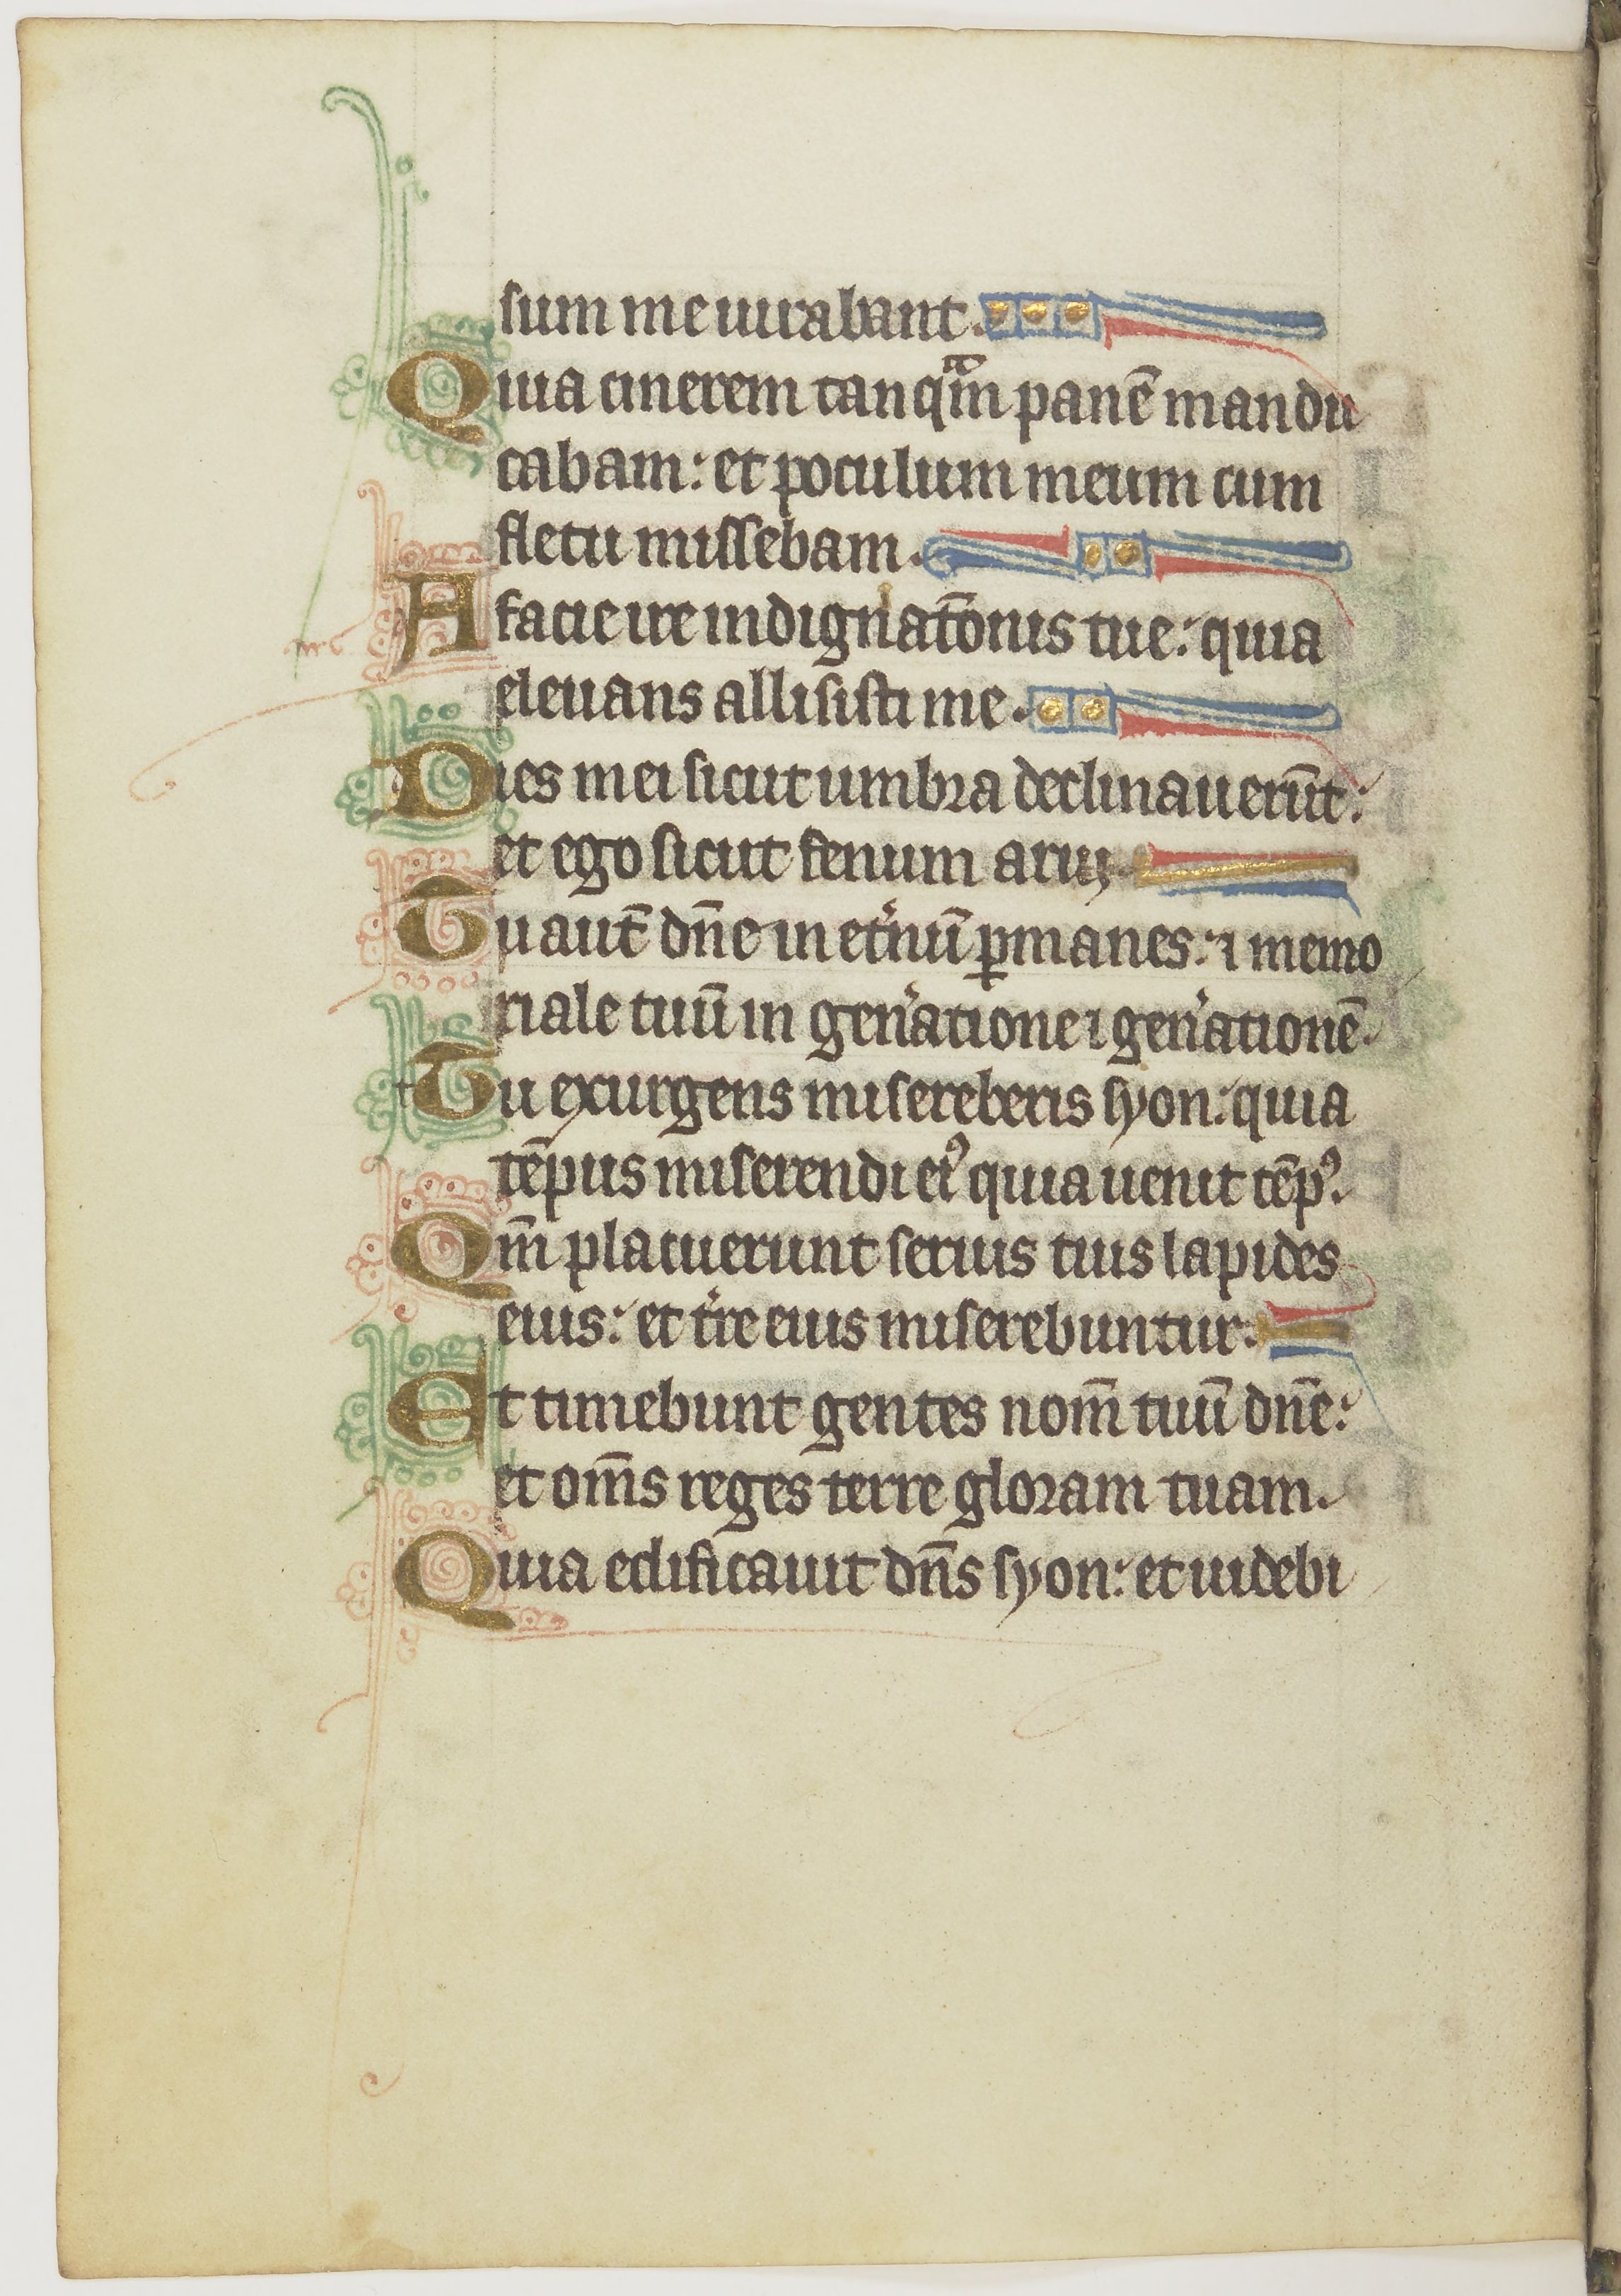 sum me iurabant.
Quia cinerem tanqᵃm̄ panē mandu
cabam: et poculum meum cum
fletu missebam.
A facie ire indignat̄onis tue: quia
eleuans allisisti me.
Dies mei sicut umbra declinauerūt:
et ego sicut fenum arui;
Tu aut̄ dn̄e in et̓nū ꝑmanes: ⁊ memo
riale tuū in gen̓atione ⁊ gen̓ationē.
Tu exurgens misereberis syon: quia
tēpus miserendi eiꝰ quia uenit tēpꝰ.
Qm̄ placuerunt seruis tuis lapides
eius: et t̓re eius miserebuntur:
Et timebunt gentes nom̄ tuū dn̄e:
et om̄s reges terre gloram tuam.
Quia edificauit dn̄s syon: et uidebi